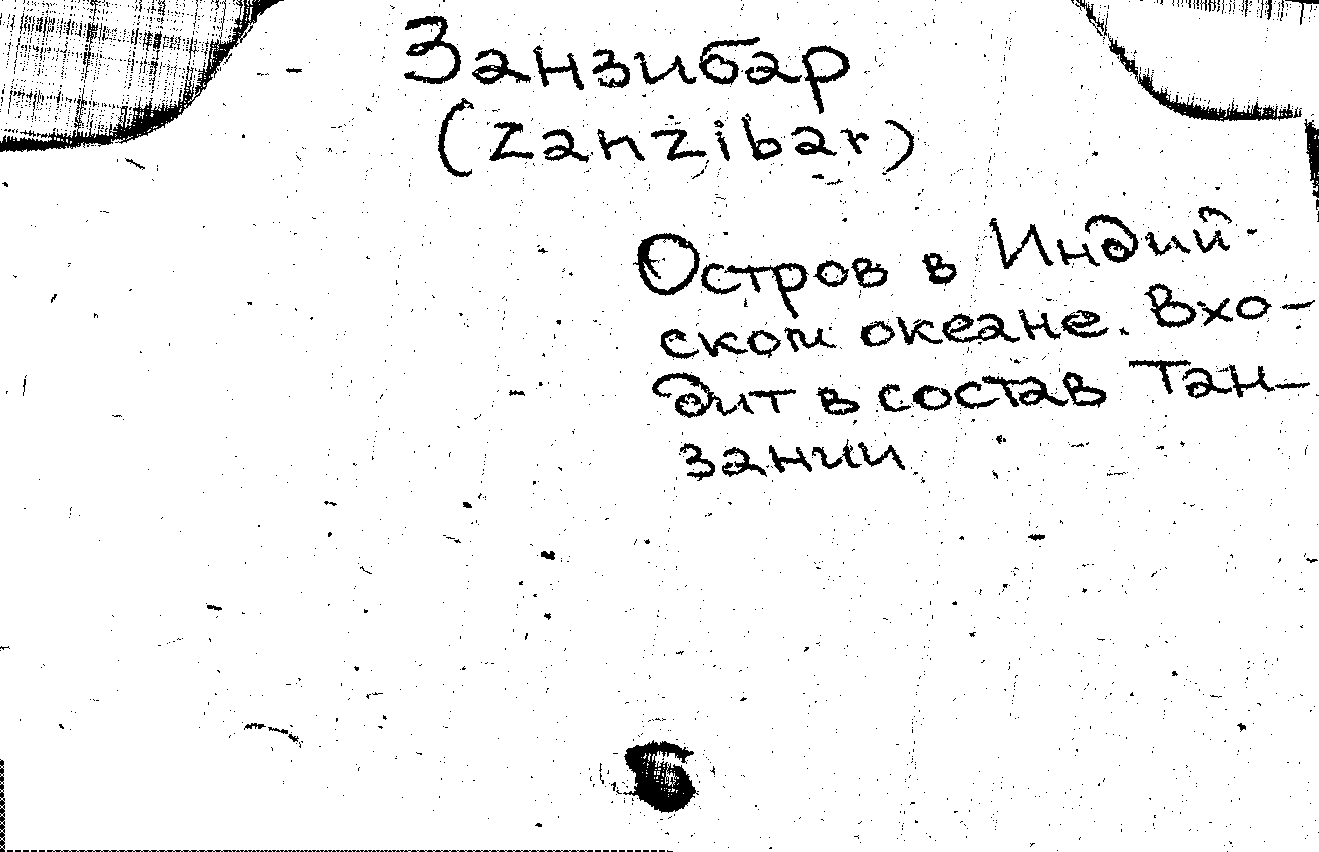 Занзибар
(Zanzibar)
Остров в Индий-
ском океане. Вхо-
дит в состав Тан-
зании